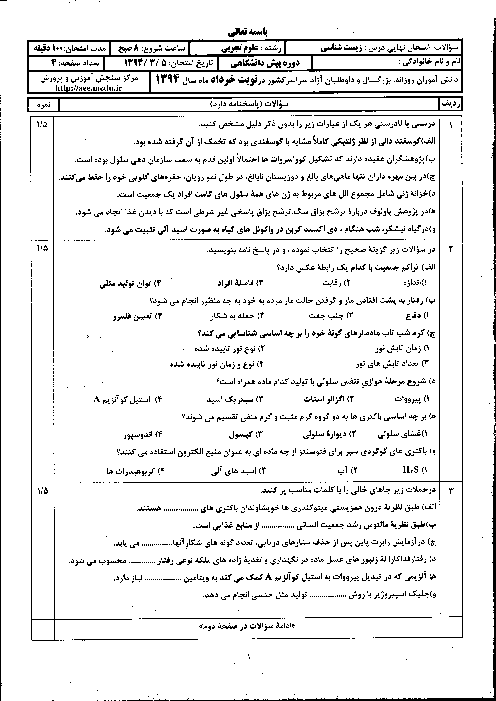 باسمه تعالی
سؤالات امتحان نهایی درس : زیست شناسی رشته : علوم تجربی ساعت شروع : ۸ صبح مدت امتحان: ۱۰۰ دقیقه
نام و نام خانوادگی : دوره پیش دانشگاهی تاریخ امتحان: ۵ / ۳ / ۱۳۹۴ تعداد صفحه: ۴
دانش آموزان روزانه، بزرگسال و داوطلبان آزاد سراسر کشور در نوبت خرداد ماه سال ۱۳۹۴ مرکز سنجش آموزش و پرورش
http://aee.medu.ir
ردیف سؤالات (پاسخنامه دارد) نمره
۱ درستی یا نادرستی هر یک از عبارات زیر را بدون ذکر دلیل مشخص کنید. ۱/۵
الف) گوسفند دالی از نظر ژنتیکی کاملاً مشابه با گوسفندی بود که تخمک از آن گرفته شده بود.
ب) پژوهشگران عقیده دارند که تشکیل کوواسروات ها احتمالاً اولین قدم به سمت سازمان دهی سلول بوده است.
ج) در بین مهره داران تنها ماهی های بالغ و دوزیستان نابالغ، در طول نمو رویان، حفره های گلویی خود را حفظ می کنند.
د) خزانه ژنی شامل مجموع الل های مربوط به ژن های همهٔ سلول های گامت افراد یک جمعیت است.
ه) در پژوهش پاولوف دربارهٔ ترشح بزاق سگ، ترشح بزاق پاسخی غیر شرطی است که با دیدن غذا ایجاد می شود.
و) در گیاه نیشکر، شب هنگام ، دی اکسید کربن در واکوئل های گیاه به صورت اسید آلی تثبیت می شود.
۲ در سؤالات زیر گزینهٔ صحیح را انتخاب نموده ، و در پاسخ نامه بنویسید. ۱/۵
الف) تراکم جمعیت با کدام یک رابطهٔ عکس دارد؟
۱) اندازه ۲) رقابت ۳) فاصلهٔ افراد ۴) توان تولید مثلی
ب) رفتار به پشت افتادن مار و گرفتن حالت مار مرده به خود به چه منظور انجام می شود؟
۱) دفاع ۲) جلب جفت ۳) حمله به شکار ۴) تعیین قلمرو
ج) کرم شب تاب ماده، نرهای گونهٔ خود را بر چه اساسی شناسایی می کند؟
۱) زمان تابش نور ۲) نوع نور تابیده شده
۳) تعداد تابش های نور ۴) نوع و زمان نور تابیده شده
د) شروع مرحلهٔ هوازی تنفس سلولی با تولید کدام ماده همراه است؟
۱) پیرووات ۲) اگزالو استات ۳) سیتریک اسید ۴) استیل کوآنزیم A
ه) بر چه اساسی باکتری ها به دو گروه گرم مثبت و گرم منفی تقسیم می شوند؟
۱) غشای سلولی ۲) دیوارهٔ سلولی ۳) کپسول ۴) آندوسپور
و) باکتری های گوگردی سبز برای فتوسنتز از چه ماده ای به عنوان منبع الکترون استفاده می کنند؟
۱) H₂S ۲) آب ۳) اسید های آلی ۴) کربوهیدرات ها
۳ در جملات زیر جاهای خالی را با کلمات مناسب پر کنید. ۱/۵
الف) طبق نظریهٔ درون همزیستی میتوکندری ها خویشاوندان باکتری های ............... هستند.
ب) طبق نظریهٔ مالتوس رشد جمعیت انسانی ............... از منابع غذایی است.
ج) در آزمایش رابرت پاین پس از حذف ستاره‌ای دریایی، تعدد گونه های شکار آنها............... می یابد.
د) رفتار فداکارانهٔ زنبور های عسل ماده در نگهداری و تغذیهٔ زاده های ملکه نوعی رفتار ............... محسوب می شود.
ه) آنزیمی که در تبدیل پیرووات به استیل کوآنزیم A کمک می کند به ویتامین ............... نیاز دارد.
و) جلبک اسپیروژیر با روش ............... تولید مثل جنسی انجام می دهد.
«ادامهٔ سؤالات در صفحهٔ دوم»
۱